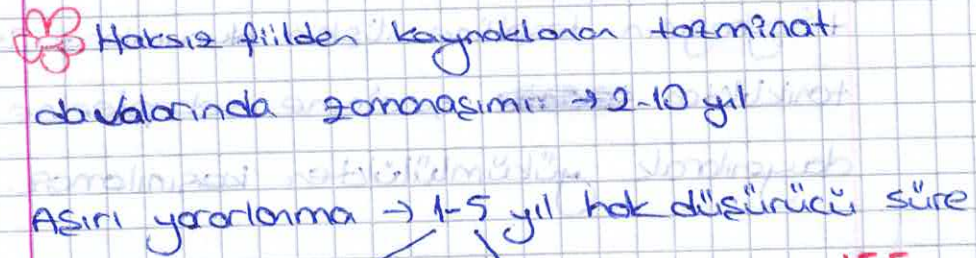 Haksız fiilden kaynaklanan tazminat
davalarında zamanaşımı → 2-10 yıl
Aşırı yararlanma → 1-5 yıl hak düşürücü süre